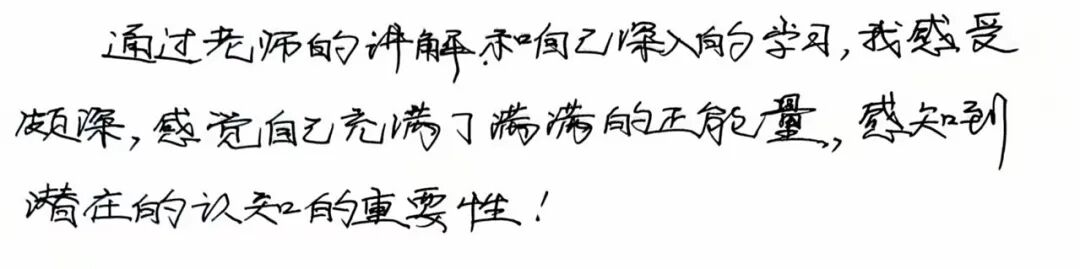 通过老师的讲解和自己深入的学习,我感受
颇深,感觉自己充满了满满的正能量,感知到
潜在的认知的重要性!